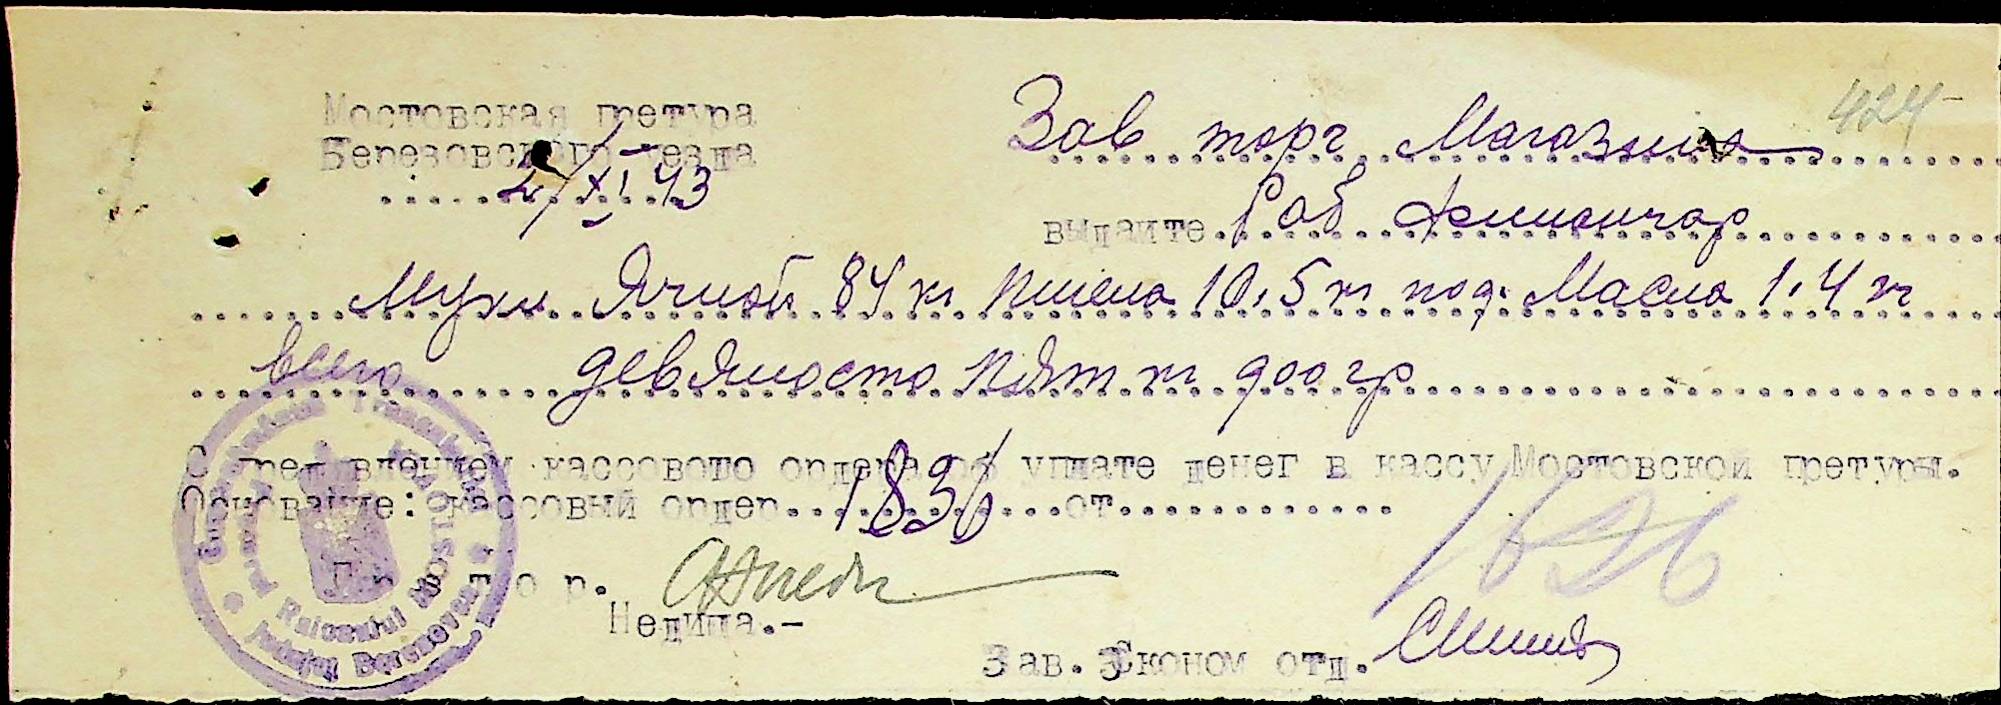 Мостовская претура
Березовского уезда
2/XI 43
424
Зав торг Магазина
выдайте Раб
Муки Ячной 84 кг пшена 10,5 кг под. Масла 1.4 кг
всего девяносто пят кг 900 гр
С пред'явлением кассового ордера об уплате денег в кассу Мостовской претуры.
Основание: кассовый ордер 1836 от
Претор.
Недица.-
Зав. Эконом отд.
Raionului MOSTOVOI
Județul Berezovca